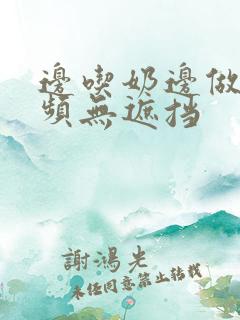 邊喫奶邊做
頻無遮挡
謝鴻光
未經同意禁止轉載